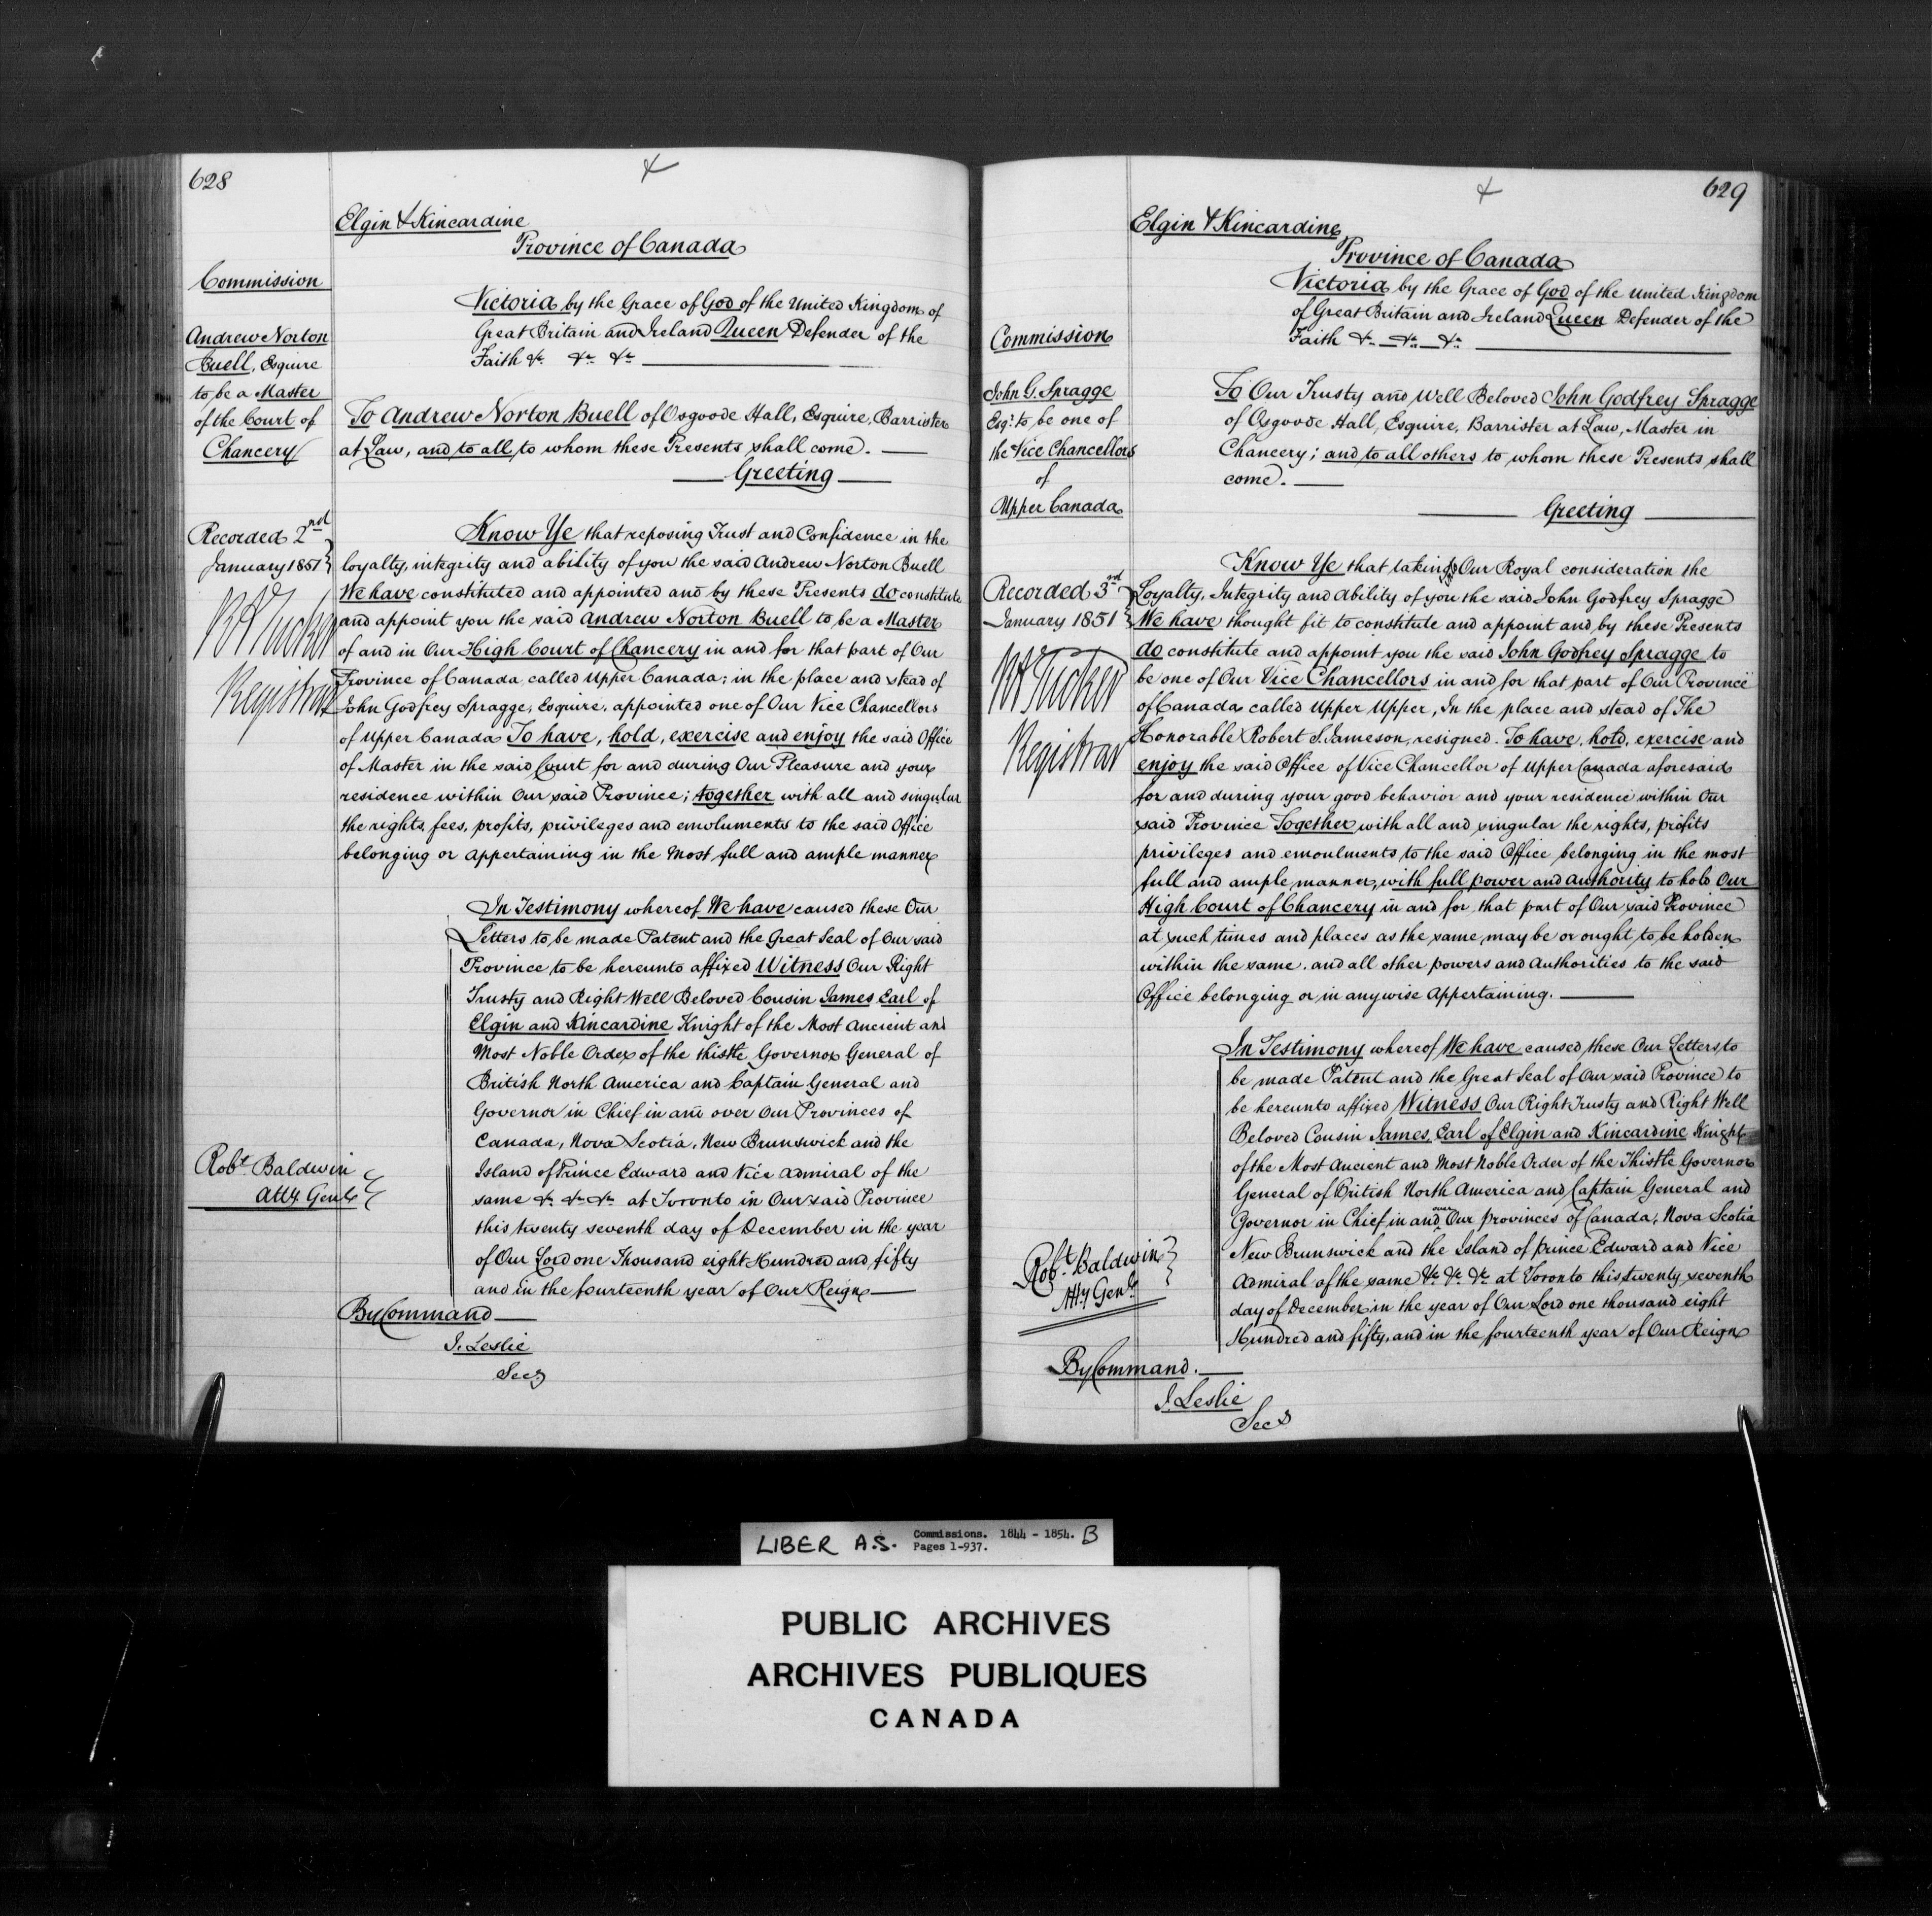 628
Elgin & Kincardine
Province of Canada
Commission
Andrew Norton
Buell, Esquire
to be a Master
of the Court of
Chancery
Victoria by the Grace of God of the United Kingdom of
Great Britain and Ireland Queen Defender of the
Faith &c. &c. &c.
To Andrew Norton Buell of Osgoode Hall, Esquire, Barrister
at Law, and to all to whom these Presents shall come.
Greeting
Recorded 2nd
January 1851
R A Tucker
Registrar
Know Ye that reposing Trust and Confidence in the
loyalty, integrity and ability of you the said Andrew Norton Buell
We have constituted and appointed and by these Presents do constitute
and appoint you the said Andrew Norton Buell to be a Master
of and in Our High Court of Chancery in and for that part of Our
Province of Canada called Upper Canada; in the place and stead of
John Godfrey Spragge, Esquire, appointed one of Our Vice Chancellors
of Upper Canada To have, hold, exercise and enjoy the said Office
of Master in the said Court for and during Our Pleasure and your
residence within Our said Province; together with all and singular
the rights, fees, profits, privileges and emoluments to the said Office
belonging or appertaining in the most full and ample manner
In Testimony whereof We have caused these Our
Letters to be made Patent and the Great Seal of Our said
Province to be hereunto affixed Witness Our Right
Trusty and Right Well Beloved Cousin James Earl of
Elgin and Kincardine Knight of the Most Ancient and
Most Noble Order of the thistle Governor General of
British North America and Captain General and
Governor in Chief in and over Our Provinces of
Canada, Nova Scotia, New Brunswick and the
Island of Prince Edward and Vice Admiral of the
same &c. &c. &c. at Toronto in Our said Province
this twenty seventh day of December in the year
of Our Lord one Thousand eight Hundred and fifty
and in the fourteenth year of Our Reign
Robt. Baldwin
Atty. Genl.
By Command
J. Leslie
Secy
629
Elgin & Kincardine
Province of Canada
Commission
John G. Spragge
Esqr. to be one of
the Vice Chancellors
of
Upper Canada
Victoria by the Grace of God of the United Kingdom
of Great Britain and Ireland Queen Defender of the
Faith &c. &c. &c.
To Our Trusty and Well Beloved John Godfrey Spragge
of Osgoode Hall, Esquire, Barrister at Law, Master in
Chancery; and to all others to whom these Presents shall
come.
Greeting
Recorded 3rd
January 1851
R A Tucker
Registrar
Know Ye that taking into Our Royal consideration the
Loyalty, Integrity and Ability of you the said John Godfrey Spragge
We have thought fit to constitute and appoint and by these Presents
do constitute and appoint you the said John Godfrey Spragge to
be one of Our Vice Chancellors in and for that part of Our Province
of Canada called Upper Upper, In the place and stead of The
Honorable Robert S. Jameson, resigned. To have, hold, exercise and
enjoy the said Office of Vice Chancellor of Upper Canada aforesaid
for and during your good behavior and your residence within Our
said Province Together with all and singular the rights, profits
privileges and emoulments to the said Office belonging in the most
full and ample manner, with full power and authority to hold Our
High Court of Chancery in and for that part of Our said Province
at such times and places as the same may be or ought to be holden
within the same. and all other powers and Authorities to the said
Office belonging or in anywise Appertaining.
In Testimony whereof We have caused these Our Letters to
be made Patent and the Great Seal of Our said Province to
be hereunto affixed Witness Our Right Trusty and Right Well
Beloved Cousin James, Earl of Elgin and Kincardine Knight
of the Most Ancient and Most Noble Order of the Thistle Governor
General of British North America and Captain General and
Governor in Chief in and over Our Provinces of Canada, Nova Scotia
New Brunswick and the Island of Prince Edward and Vice
Admiral of the same &c. &c. &c. at Toronto this twenty seventh
day of December in the year of Our Lord one thousand eight
Hundred and fifty, and in the fourteenth year of Our Reign
Robt. Baldwin
Atty Genl.
By Command.
J. Leslie
Secy
LIBER A.S. Commissions. 1844 - 1854. B
Pages 1-937.
PUBLIC ARCHIVES
ARCHIVES PUBLIQUES
CANADA